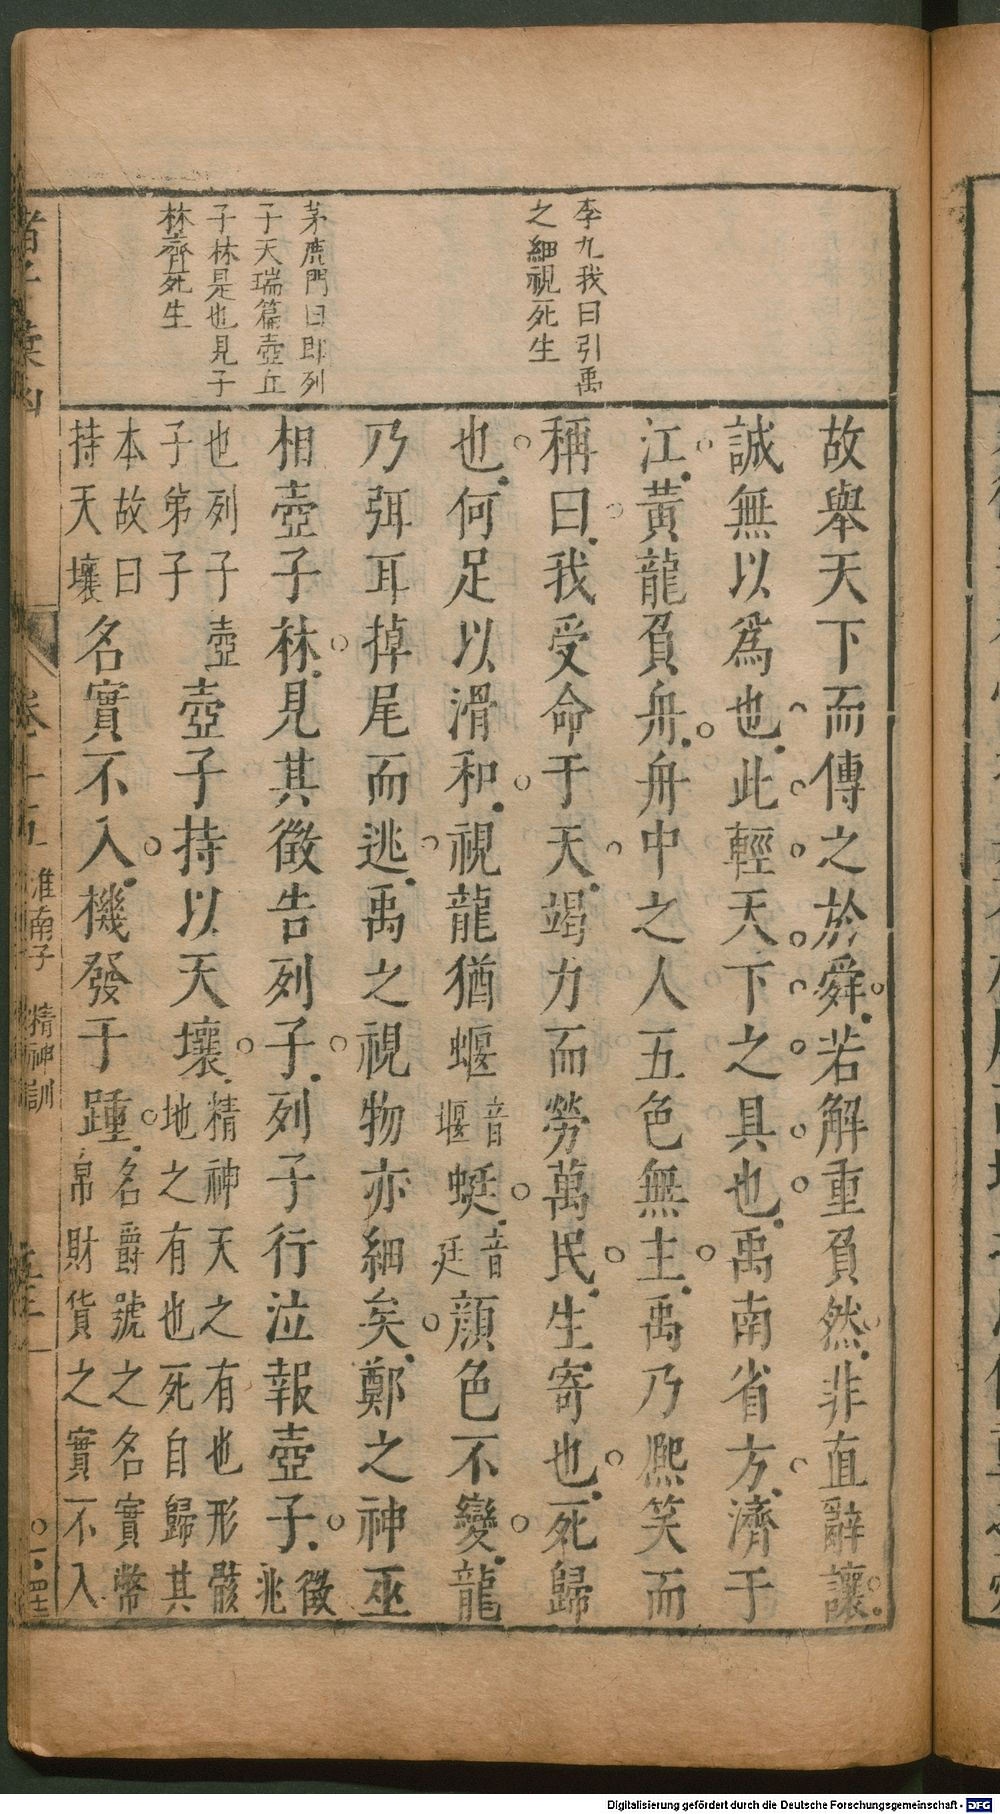 李九我曰引禹
之細視死生
茅鹿門曰即列
子天瑞篇壺丘
子林是也見子
林齊死生
故舉天下而傳之於舜若解重負然非直辭讓
誠無以爲也此輕天下之具也禹南省方濟于
江黃龍負舟舟中之人五色無主禹乃熈笑而
稱曰我受命于天竭力而勞萬民生寄也死歸
也何足以滑和視龍猶蝘音堰蜓音廷顔色不變龍
乃弭耳掉尾而逃禹之視物亦細矣鄭之神巫
相壺子林見其徵告列子列子行泣報壺子徵兆
也列子壺子弟子壺子持以天壤精神天之有也形骸地之有也死自歸其
本故曰持天壤名實不入機發于踵名爵號之名實幣帛財貨之實不入
諸子彙函
卷十五
淮南子 精神訓
四十二
Digitalisierung gefördert durch die Deutsche Forschungsgemeinschaft - DFG